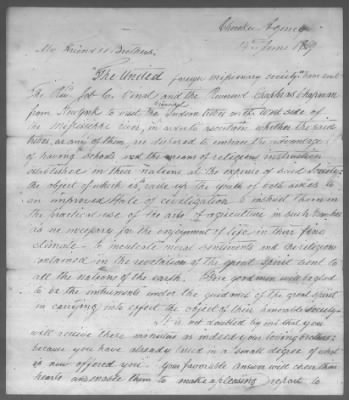 Cherokee Agency
June 1819
My Friends & Brothers,
"The United foreign missionary society" have sent
The Revd Job C. Vinal and the Reverend Epaphras Chapman
from New york to visit the Principal Indian tribes on the West side of
the Mississippi river, in order to ascertain whether the said
tribes, or any of them, are disposed to embrace the advantage
of having schools and the means of religious instruction
established in their nations at the expense of said Society:
the object of which is, raise up the youth of both sexes to
an improved state of civilization to instruct them in
the practical use of the arts of agriculture in such branches
as are necessary for the enjoyment of life, in their fine
climate - to inculcate moral sentiments and the religion
contained in the revelation of the great spirit sent to
all the nations of the earth. These good men will be glad
to be the instruments under the guidance of the great spirit
in carrying into effect the object of their honorable society -
It is not doubted by me that you
will receive these ministers as indeed your loving brothers:
because you have already lived in a small degree of what
is now offered you. Your favorable answer will cheer their
hearts and enable them to make a pleasing report to